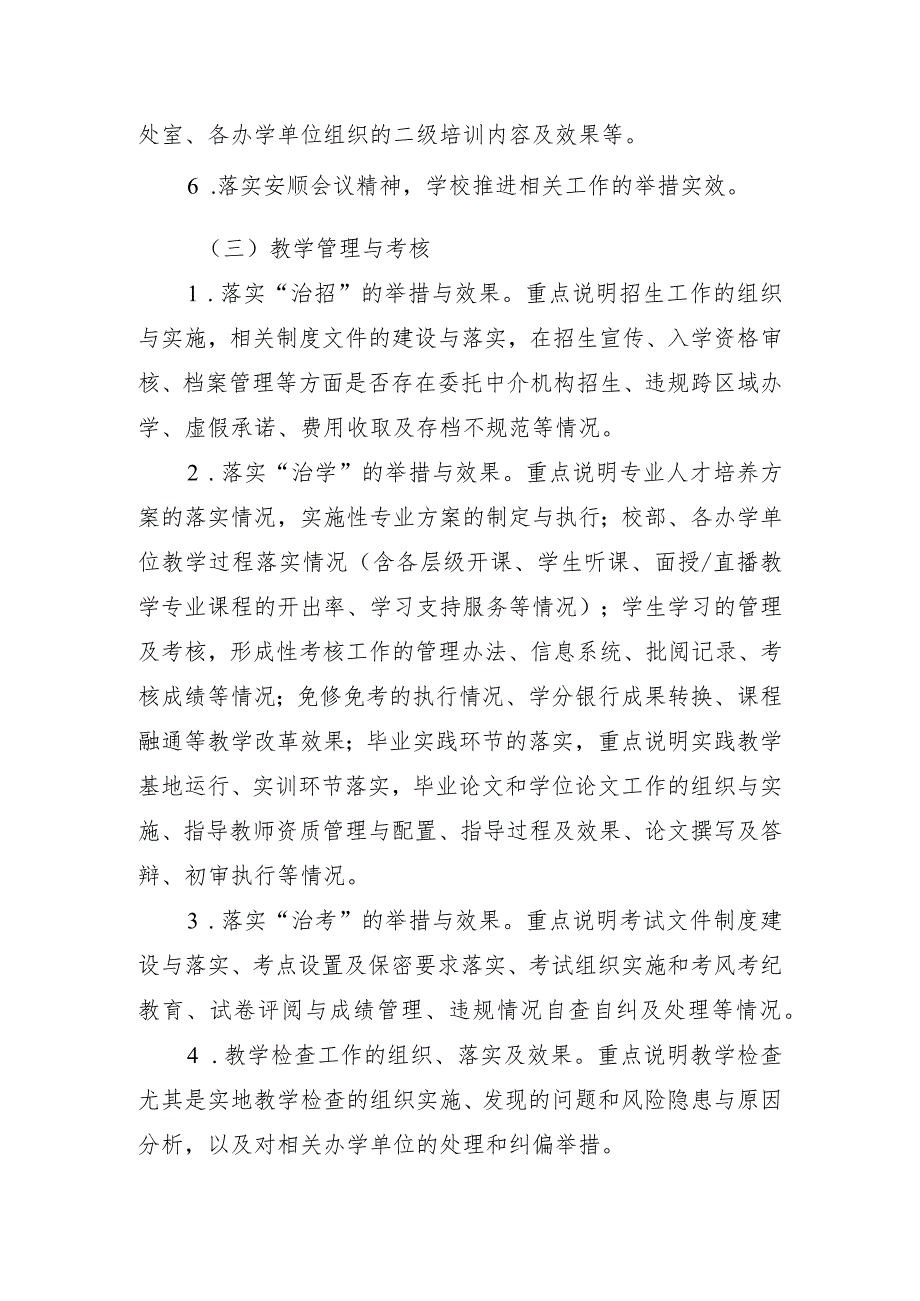 处室、各办学单位组织的二级培训内容及效果等。
6 .落实安顺会议精神，学校推进相关工作的举措实效。
（三）教学管理与考核
1 .落实“治招”的举措与效果。重点说明招生工作的组织
与实施，相关制度文件的建设与落实，在招生宣传、入学资格审
核、档案管理等方面是否存在委托中介机构招生、违规跨区域办
学、虚假承诺、费用收取及存档不规范等情况。
2 .落实“治学”的举措与效果。重点说明专业人才培养方
案的落实情况，实施性专业方案的制定与执行；校部、各办学单
位教学过程落实情况（含各层级开课、学生听课、面授/直播教
学专业课程的开出率、学习支持服务等情况）；学生学习的管理
及考核，形成性考核工作的管理办法、信息系统、批阅记录、考
核成绩等情况；免修免考的执行情况、学分银行成果转换、课程
融通等教学改革效果；毕业实践环节的落实，重点说明实践教学
基地运行、实训环节落实，毕业论文和学位论文工作的组织与实
施、指导教师资质管理与配置、指导过程及效果、论文撰写及答
辩、初审执行等情况。
3 .落实“治考”的举措与效果。重点说明考试文件制度建
设与落实、考点设置及保密要求落实、考试组织实施和考风考纪
教育、试卷评阅与成绩管理、违规情况自查自纠及处理等情况。
4 .教学检查工作的组织、落实及效果。重点说明教学检查
尤其是实地教学检查的组织实施、发现的问题和风险隐患与原因
分析，以及对相关办学单位的处理和纠偏举措。